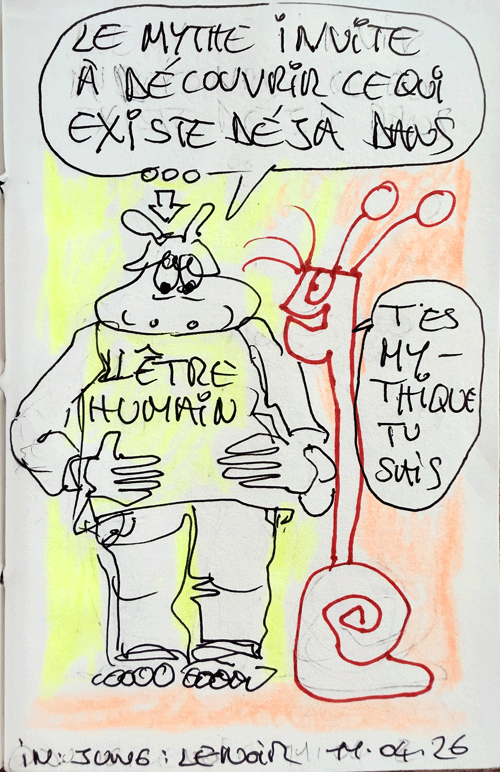 LE MYTHE INVITE
À DÉCOUVRIR CE QUI
EXISTE DÉJÀ DANS
L'ÊTRE
HUMAIN
T'ES
MY-
THIQUE
TU
SAIS
IN: JUNG: LENOIR 11.04.26